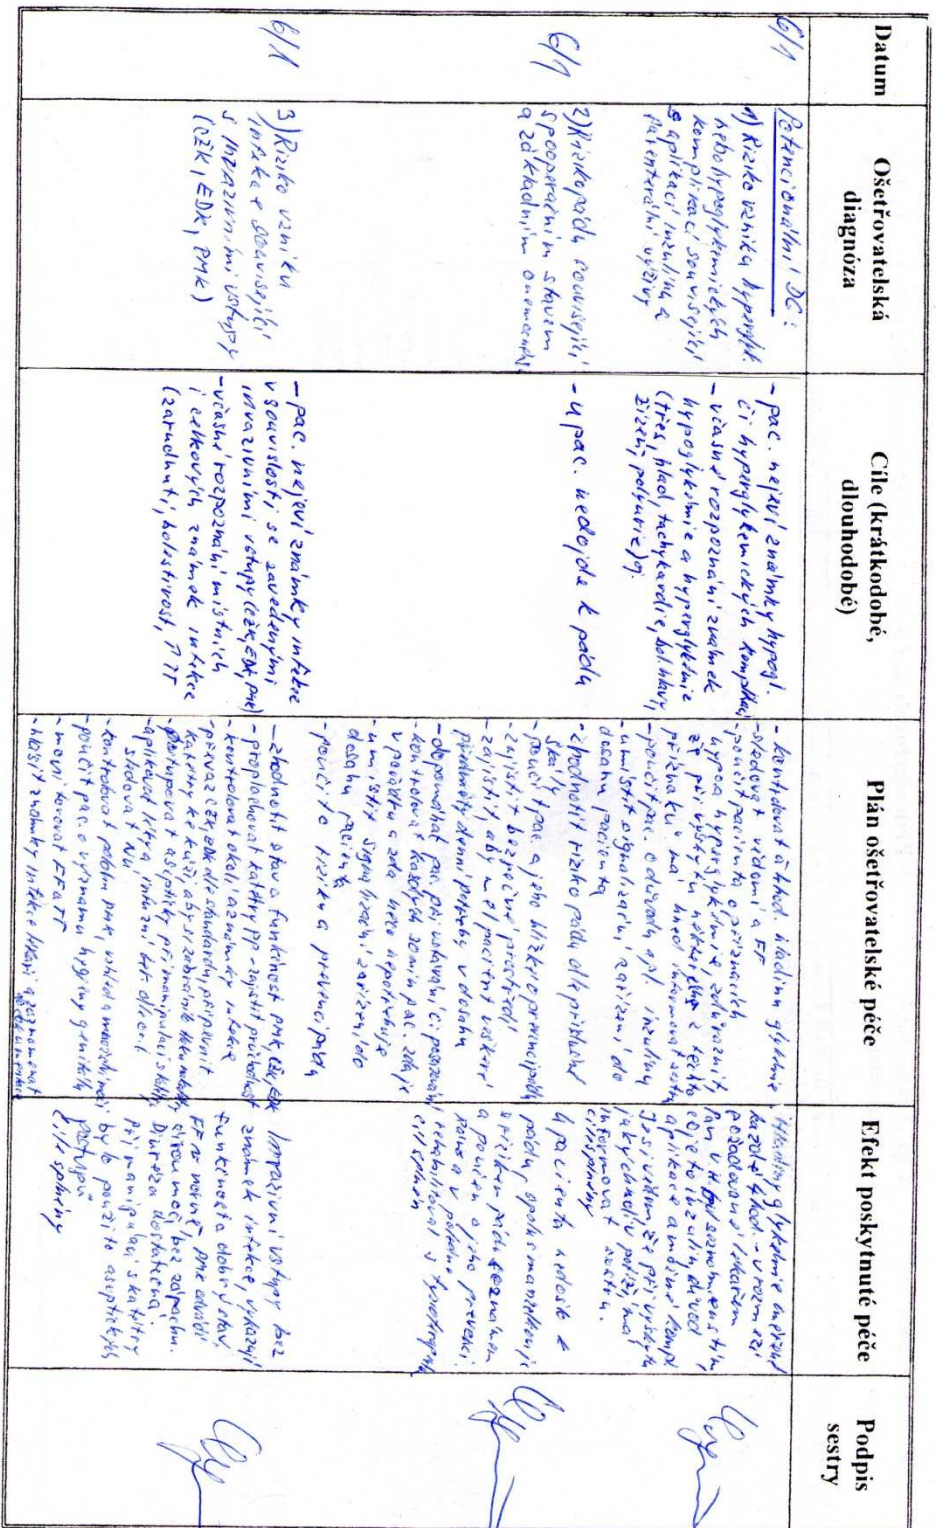 Datum
Ošetřovatelská
diagnóza
Cíle (krátkodobé,
dlouhodobé)
Plán ošetřovatelské péče
Efekt poskytnuté péče
Podpis
sestry
6/1
Potencionální DG:
1) Riziko vzniku hyperglyk.
nebo hypoglykemických
komplikací související
s aplikací inzulínu a
parenterální výživy
- pac. nejeví známky hypogl.
či hyperglykemických komplikací
- včasné rozpoznání známek
hypoglykémie a hyperglykémie
(třes, hlad, tachykardie, bol. hlavy,
žízeň, polyurie)
- kontrolovat á hod hladinu glykémie
- sledovat vědomí a FF
- poučit pacienta o příznacích
hypo a hyperglykémie, zdůraznit,
že při výskytu některého z těchto
příznaků má hned informovat sestru
- poučit pac. o důvodu apl. inzulínu
- umístit signalizační zařízení do
dosahu pacienta
každé hod. - v rozmezí
požadované lékařem
Pan V.H. byl seznámen s tím,
co je to inzulin, důvod
aplikace a možné kompl.
Je si vědom, že při výskytu
jakýchkoliv potíží má
informovat sestru.
Cíl splněny
6/1
2) Riziko pádu související
s pooperačním stavem
a základním onemocněním
- u pac. nedojde k pádu
- zhodnotit riziko pádu dle příslušné
škály
- poučit pac. a jeho blízké o prevenci pádu
- zajistit bezpečné prostředí
- zajistit, aby měl pacient veškeré
předměty denní potřeby v dosahu
- dopomáhat pac. při vstávání či
- kontrolovat každých 30 min pac. zda je
v pořádku a zda něco nepotřebuje
- umístit signalizační zařízení do
dosahu pacienta
- poučit o riziku a prevenci pádu
U pacienta nedošlo k
pádu, spolu s manželkou je
s rizikem pádu seznámen
a poučen o jeho prevenci.
rehabilitoval s fyzioterap.
cíl splněn
6/1
3) Riziko vzniku
infekce související
s invazivními vstupy
(CŽK, EDK, PMK)
- pac. nejeví známky infekce
v souvislosti se zavedenými
invazivními vstupy (CŽK, EDK, PMK)
- včasné rozpoznání místních
i celkových známek infekce
(zarudnutí, bolestivost, ↑TT
- zhodnotit stav a funkčnost PMK, CŽK, EDK
- proplachovat katétry - zajistit průchodnost
- kontrolovat okolí a známky infekce
- převaz CŽK, EDK dle standardu, připevnit
katétry ke kůži, aby se zabránilo
- postupovat asepticky při manipulaci s katétry
- aplikovat léky a infuzní
sledovat NÚ
- kontrolovat polohu PMK, vzhled a množství moči
- poučit pac. o významu hygieny genitálu
- monitorovat FF a TT
- hlásit známky infekce lékaři a zaznamenat
Invazivní vstupy bez
známek infekce, vykazují
funkčnost a dobrý stav.
FF v normě. PMK odvádí
čirou moč, bez zápachu.
Diuréza dostatečná.
Při manipulaci s katétry
bylo použito aseptických
postupů
Cíle splněny